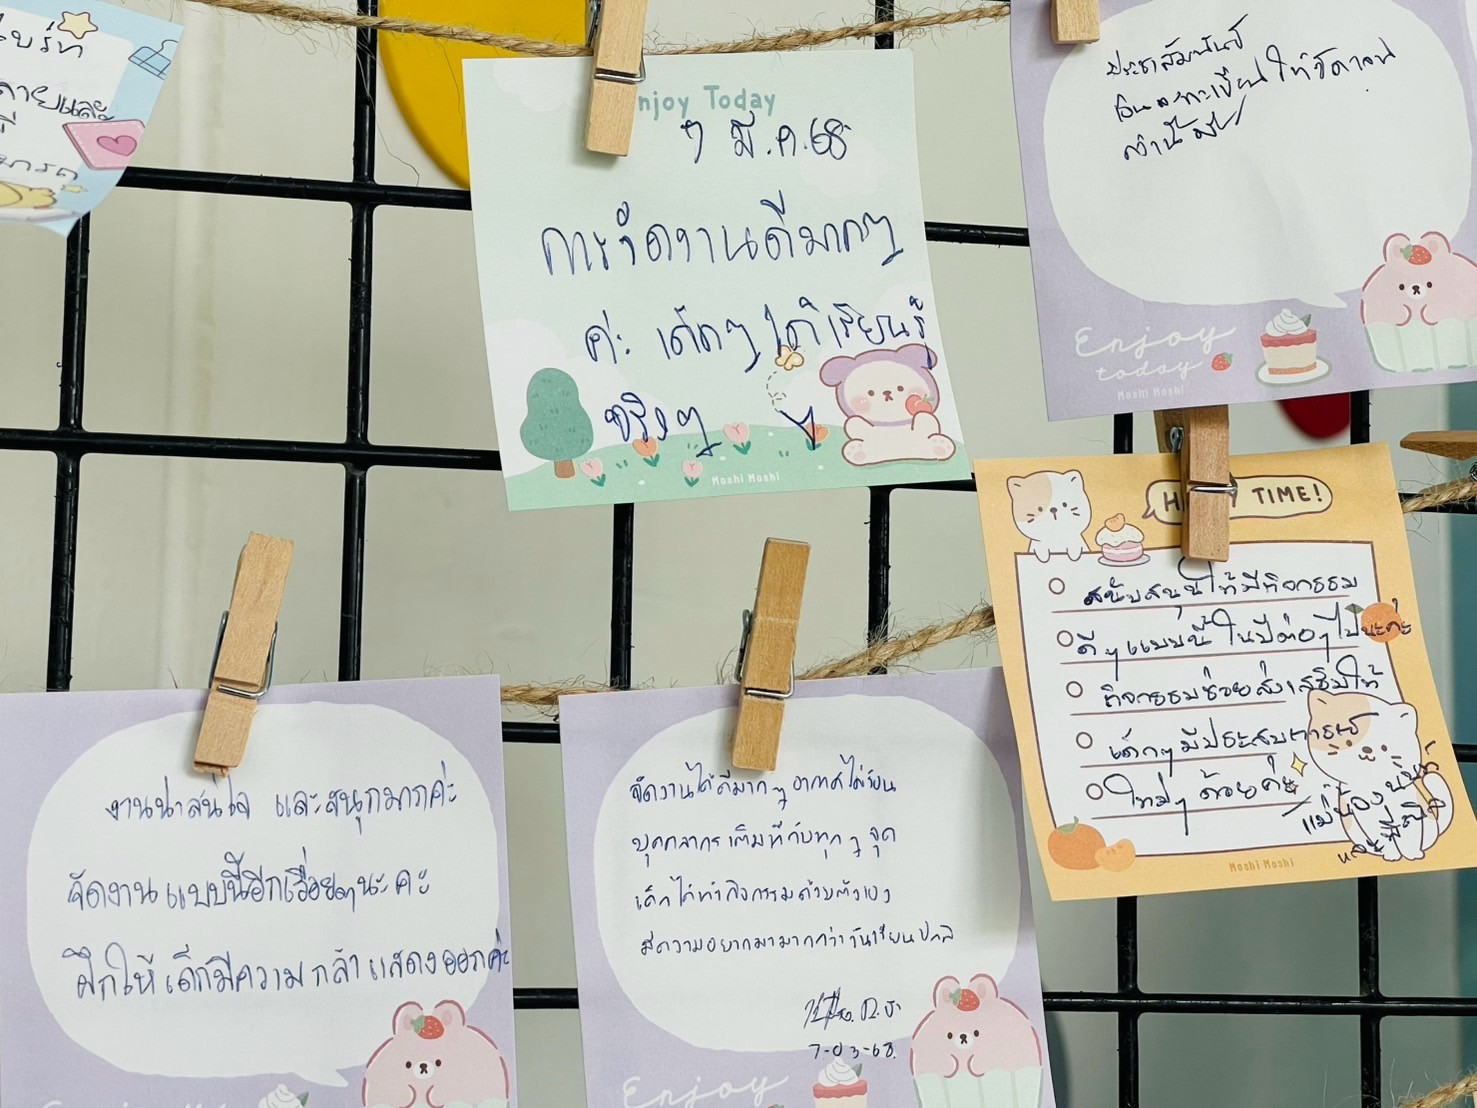 Enjoy Today
7 มี.ค.68
การจัดงานดีมากๆ
ค่ะ เด็กๆ ได้เรียนรู้
จริงๆ
Moshi Moshi
ประชาสัมพันธ์
ให้ชัดเจน
กว่านี้
Enjoy
today
Moshi Moshi
TIME!
สนับสนุนให้มีกิจกรรม
ดีๆ แบบนี้ ในปีต่อๆไปนะค่ะ
กิจกรรมช่วยส่งเสริมให้
เด็กๆ มีประสบการณ์
ใหม่ๆ ด้วยค่ะ
แม่น้อง
Moshi Moshi
งานน่าสนใจ และสนุกมากค่ะ
จัดงานแบบนี้อีกเรื่อยๆนะคะ
ฝึกให้เด็กมีความกล้าแสดงออกค่ะ
จัดงานได้ดีมากๆ อากาศไม่ร้อน
บุคลากรเต็มที่กับทุกๆจุด
เด็กได้ทำกิจกรรมด้วยตัวเอง
มีความอยากมามากกว่าวันเรียนปกติ
7-03-68.
Enjoy